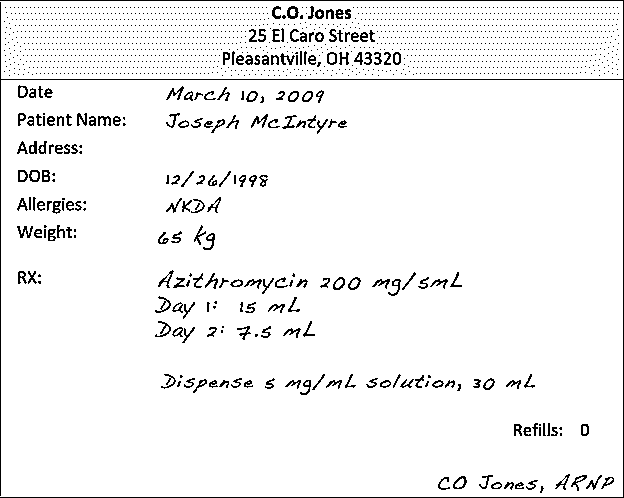 C.O. Jones
25 El Caro Street
Pleasantville, OH 43320
Date March 10, 2009
Patient Name: Joseph McIntyre
Address:
DOB: 12/26/1998
Allergies: NKDA
Weight: 65 kg
RX: Azithromycin 200 mg/5mL
Day 1: 15 mL
Day 2: 7.5 mL
Dispense 5 mg/mL solution, 30 mL
Refills: 0
CO Jones, ARNP